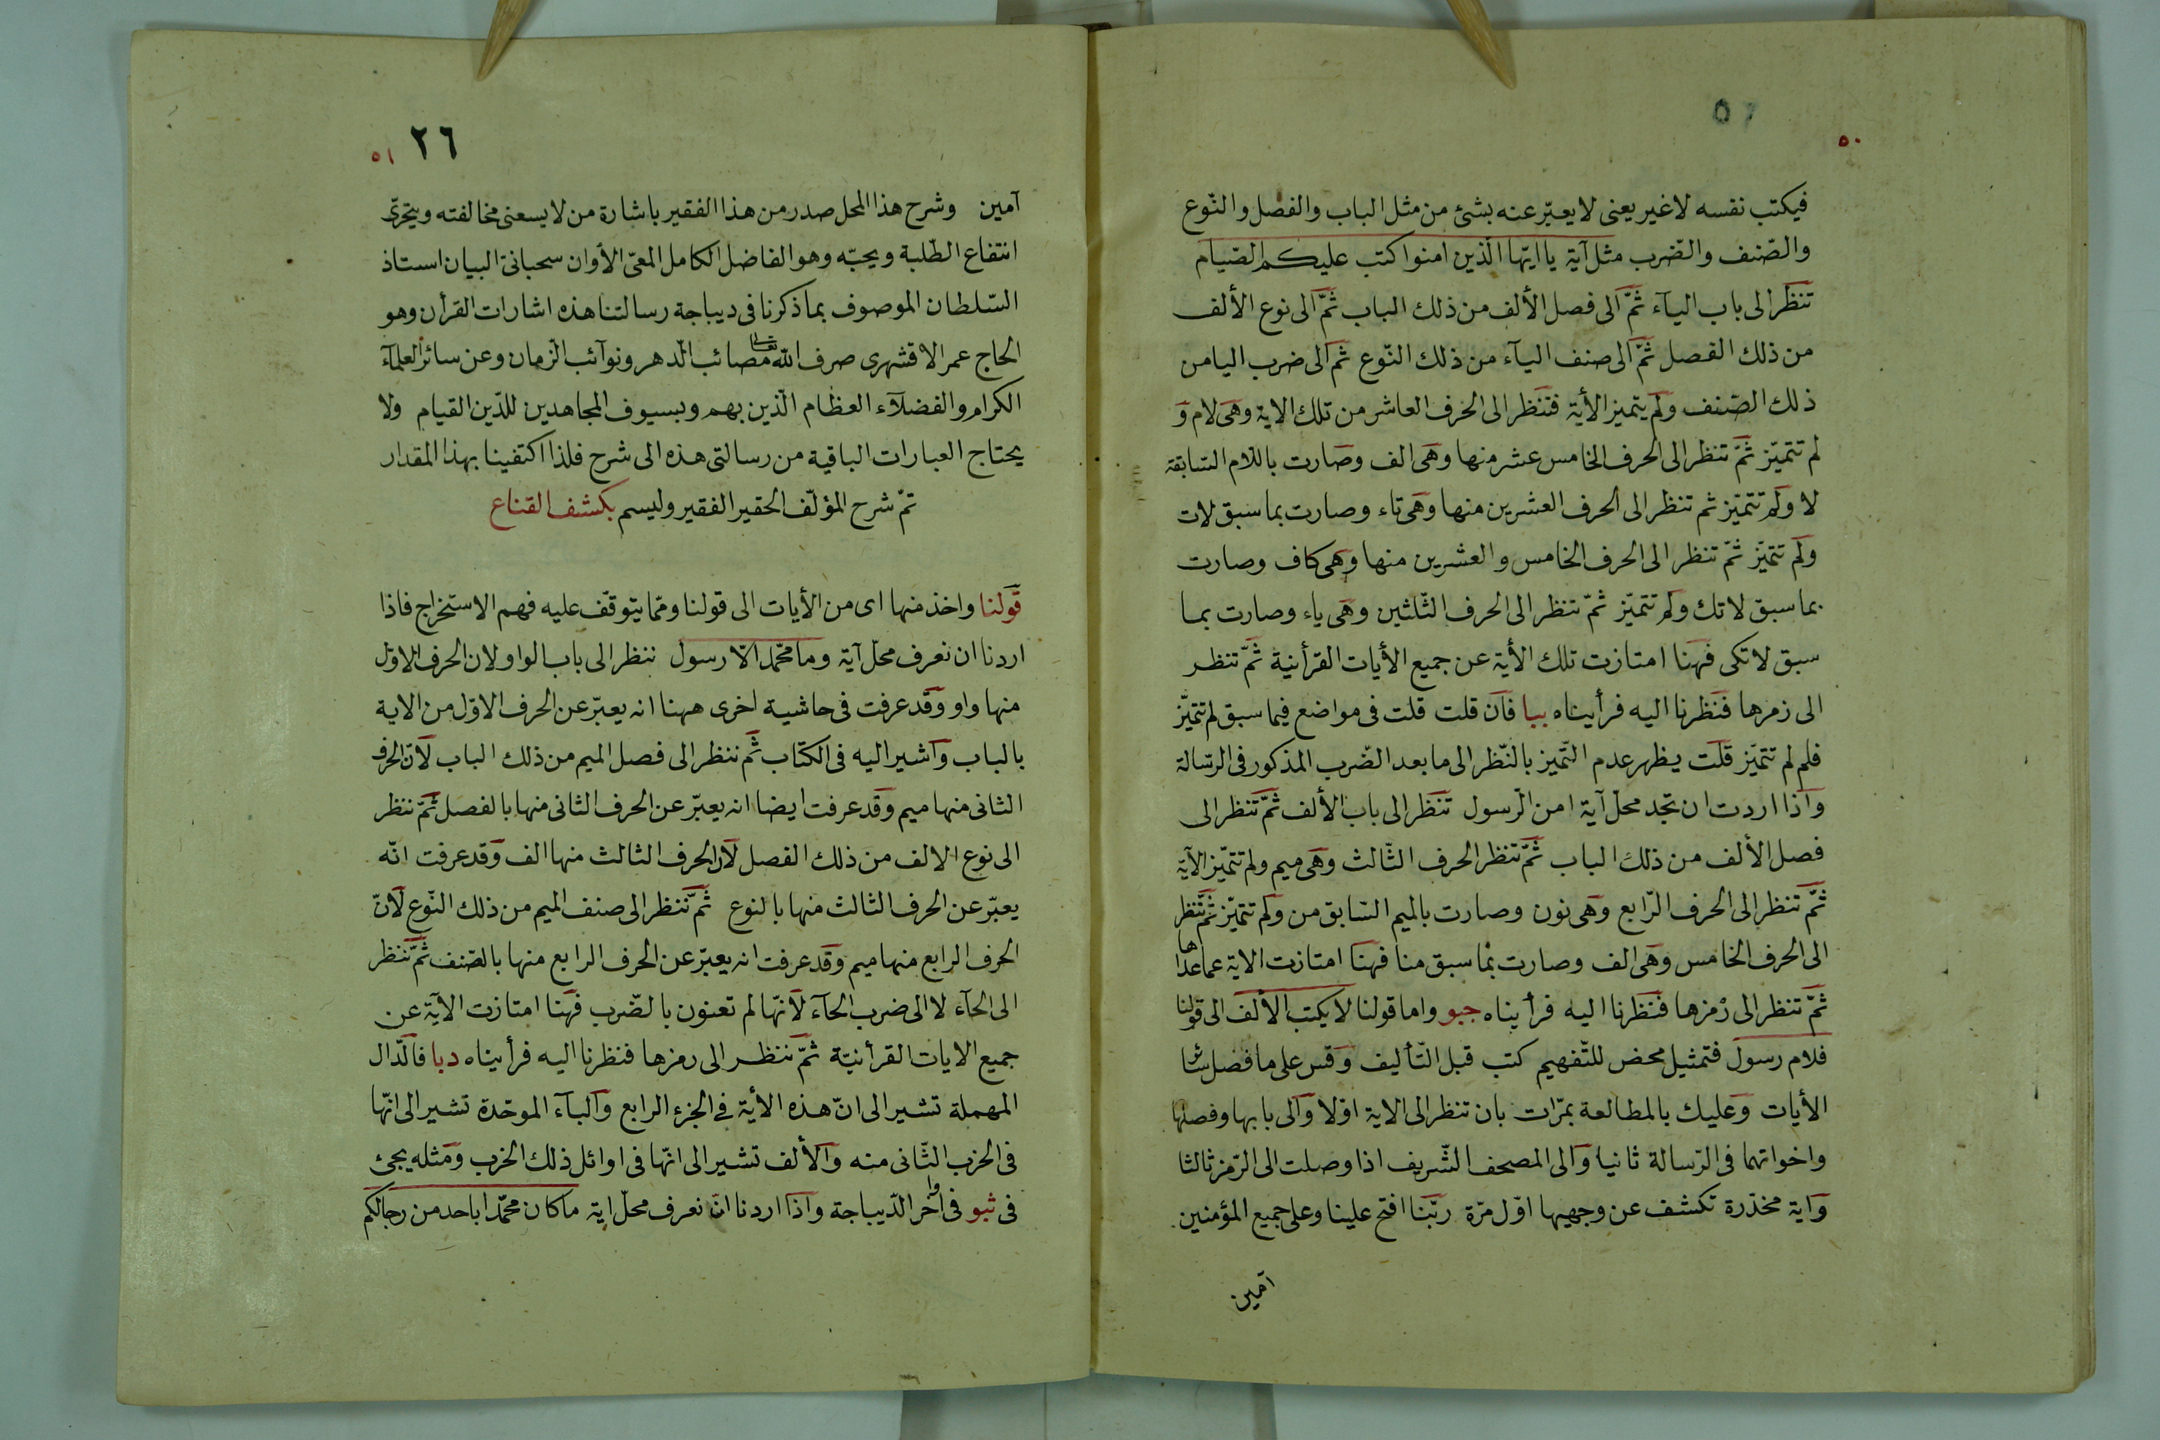 ٥٠
فيكتب نفسه لاغير يعنى لا يعبّر عنه بشئ من مثل الباب والفصل والنّوع
والصّنف والضّرب مثل آية يا ايّها الّذين امنوا كتب عليكم الصّيام
تنظر الى باب اليآء ثمّ الى فصل الألف من ذلك الباب ثمّ الى نوع الألف
من ذلك الفصل ثمّ الى صنف اليآء من ذلك النّوع ثم الى ضرب اليا من
ذلك الصّنف ولم يتميز الأية فننظر الى الحرف العاشر من تلك الاية وهى لام و
لم تتميّز ثمّ تنظر الى الحرف الخامس عشر منها وهى الف وصارت باللام السّابقة
لا ولم تتميّز ثم تنظر الى الحرف العشرين منها وهى تاء وصارت بما سبق لات
ولم تتميّز ثمّ تنظر الى الحرف الخامس والعشرين منها وهى كاف وصارت
بما سبق لاتك ولم تتميّز ثمّ تنظر الى الحرف الثّلثين وهى ياء وصارت بما
سبق لاتكى فهنا امتازت تلك الأية عن جميع الأيات القرأنية ثمّ تنظر
الى زمزها فنظرنا اليه فرأيناه ببا فان قلت قلت فى مواضع فيما سبق لم تتميّز
فلم لم تتميّز قلت يظهر عدم التّميز بالنّظر الى ما بعد الضّرب المذكور فى الرّسالة
واذا اردت ان تجد محلّ آية امن الرّسول تنظر الى باب الألف ثمّ تنظر الى
فصل الألف من ذلك الباب ثمّ تنظر الحرف الثّالث وهى ميم ولم تتميّز الآية
ثمّ تنظر الى الحرف الرّابع وهى نون وصارت بالميم السّابق من ولم تتميّز ثمّ تنظر
الى الحرف الخامس وهى الف وصارت بما سبق منا فهنا امتازت الاية عما عداها
ثمّ تنظر الى رمزها فنظرنا اليه فرأيناه جبو واما قولنا لا يكتب الألف الى قولنا
فلام رسول فتمثيل محض للتّفهيم كتب قبل التّأليف وقس على ما فصل سائر
الأيات وعليك بالمطالعة بمرّات بان تنظر الى الاية اوّلا والى بابها وفصلها
واخواتهما فى الرّسالة ثانيا والى المصحف الشّريف اذا وصلت الى الرّمز ثالثا
واية مخدّرة تكشف عن وجهيها اوّل مرّة ربّنا افتح علينا وعلى جميع المؤمنين
آمين
٢٦ ٥١
آمين وشرح هذا المحل صدر من هذا الفقير باشارة من لا يسعنى مخالفته ويتحرّى
انتفاع الطّلبة ويحبّه وهو الفاضل الكامل المعىّ الأوان سحبانىّ البيان استاذ
السّلطان الموصوف بما ذكرنا فى ديباجة رسالتنا هذه اشارات القرأن وهو
الحاج عمر الاقشهرى صرف الله تعالى مصائب الّدهر ونوآئب الّزمان وعن سائر العلمآء
الكرام والفضلآء العظام الّذين بهم وبسيوف المجاهدين للدّين القيام ولا
يحتاج العبارات الباقية من رسالتى هذه الى شرح فلذا اكتفينا بهذا المقدار
تمّ شرح المؤلّف الحقير الفقير وليسم بكشف القناع
قولنا واخذ منها اى من الأيات الى قولنا وممّا يتوقّف عليه فهم الاستخراج فاذا
اردنا ان نعرف محلّ آية وما محمّد الّا رسول ننظر الى باب الواو لان الحرف الاوّل
منها واو وقد عرفت فى حاشية اخرى ههنا انه يعبّر عن الحرف الاوّل من الاية
بالباب واشير اليه فى الكتاب ثم ننظر الى فصل الميم من ذلك الباب لانّ الحرف
الثانى منها ميم وقد عرفت ايضا انه يعبّر عن الحرف الثانى منها بالفصل ثمّ ننظر
الى نوع الالف من ذلك الفصل لان الحرف الثالث منها الف وقد عرفت انّه
يعبّر عن الحرف الثالث منها بالنوع ثمّ ننظر الى صنف الميم من ذلك النّوع لانّ
الحرف الرابع منها ميم وقد عرفت انه يعبّر عن الحرف الرابع منها بالصّنف ثمّ ننظر
الى الحآء لا الى ضرب الحآء لانّها لم تعنون بالضّرب فهنا امتازت الآية عن
جميع الايات القرأنيّة ثمّ ننظر الى رمزها فنظرنا اليه فرأيناه دبا فالّدال
المهملة تشير الى انّ هذه الأية فى الجزء الرابع والبآء الموحّدة تشير الى انّها
فى الحزب الثّانى منه والألف تشير الى انّها فى اوائل ذلك الحزب ومثله يجئ
فى ثبو فى اواخر الدّيباجة واذا اردنا ان نعرف محلّ اية ما كان محمّد ابا احد من رجالكم